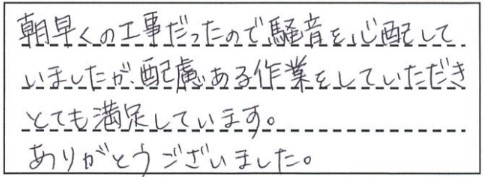 朝早くの工事だったので騒音を心配して
いましたが、配慮ある作業をしていただき
とても満足しています。
ありがとうございました。